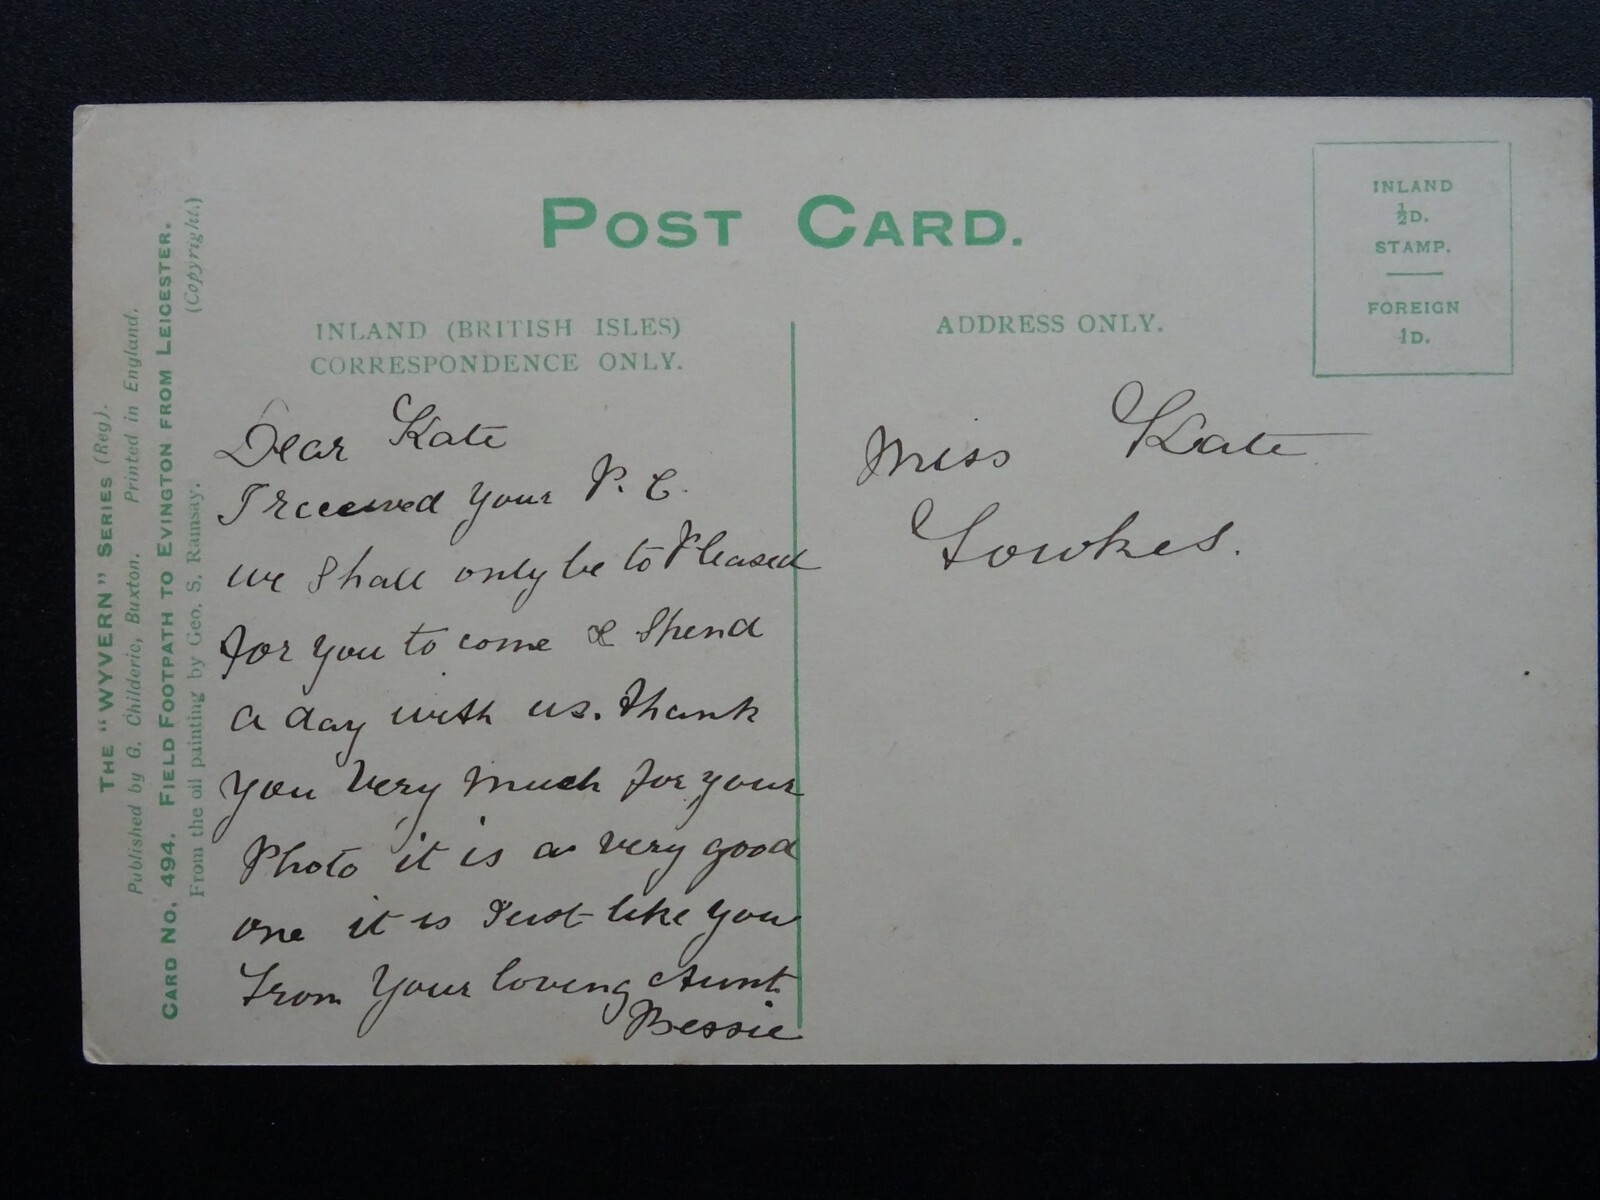 THE "WYVERN" SERIES (Reg).
Published by G. Childeric, Buxton. Printed in England.
CARD NO. 494. FIELD FOOTPATH TO EVINGTON FROM LEICESTER.
From the oil painting by Geo. S. Ramsay. (Copyright.)
POST CARD.
INLAND (BRITISH ISLES)
CORRESPONDENCE ONLY.
Dear Kate
I received your P. C.
we shall only be to Pleased
for you to come & Spend
a day with us. Thank
you Very much for your
Photo it is a very good
one it is Just like you
From Your loving Aunt
Bessie
ADDRESS ONLY.
Miss Kate
Fowkes.
INLAND
½D.
STAMP.
FOREIGN
1D.